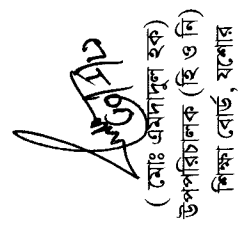 ( মোঃ এমদাদুল হক)
উপপরিচালক (হি ও নি)
শিক্ষা বোর্ড, যশোর